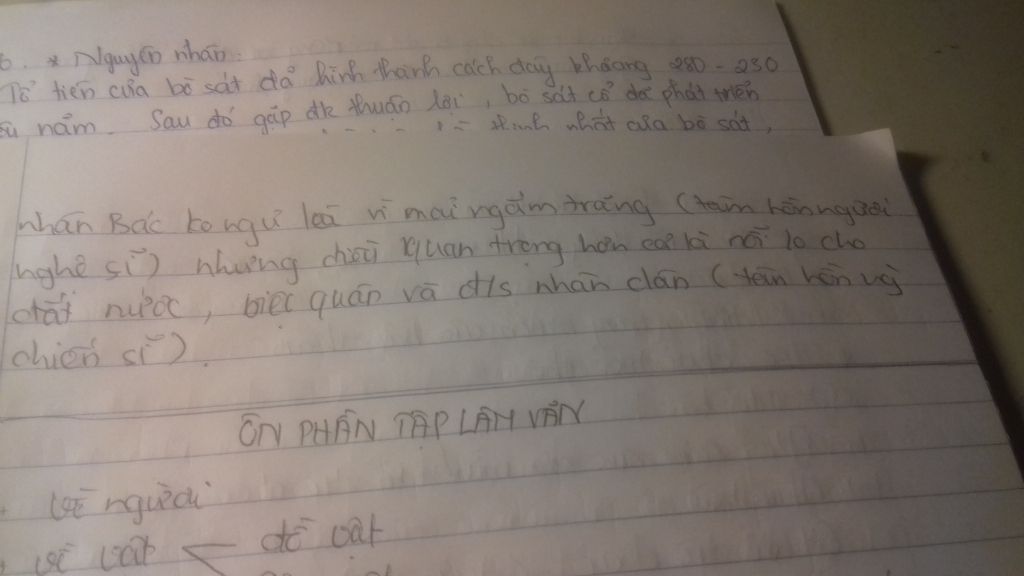 6. * Nguyên nhân:
Tổ tiên của bò sát đã hình thành cách đây khoảng 280 - 230
năm. Sau đó gặp đk thuận lợi, bò sát cổ đã phát triển
thịnh nhất của bò sát,
nhân Bác ko ngủ là vì mải ngắm trăng (tâm hồn người
nghệ sĩ) nhưng điều quan trọng hơn cả là nỗi lo cho
đất nước, việc quân và đ/s nhân dân (tâm hồn ng
chiến sĩ).
ÔN PHẦN TẬP LÀM VĂN
Về người
về vật < đồ vật